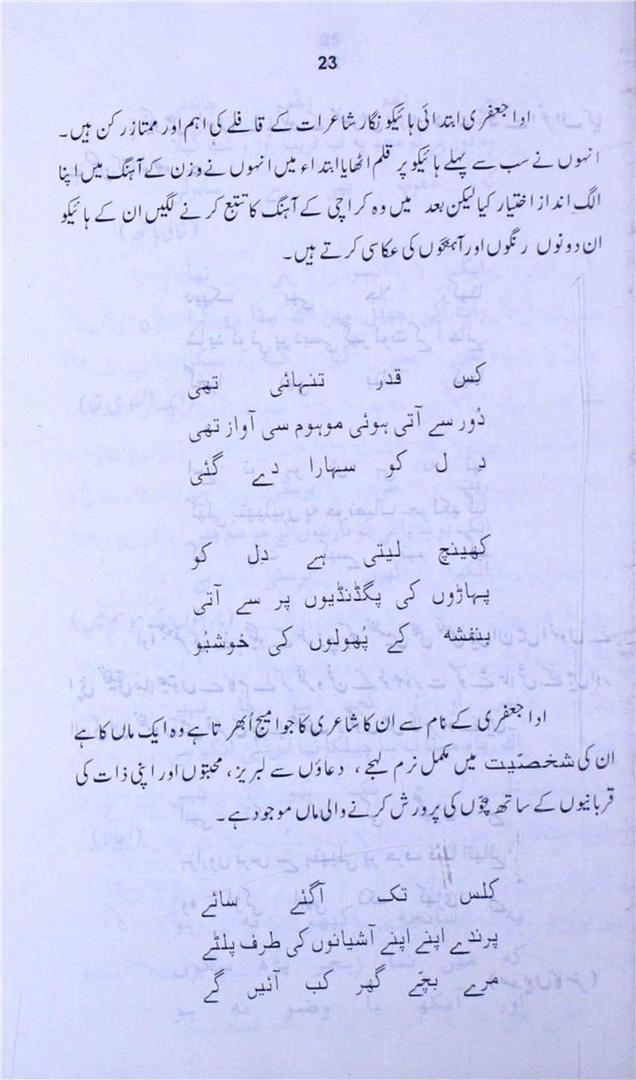 23
ادا جعفری ابتدائی ہائیکو نگار شاعرات کے قافلے کی اہم اور ممتاز رکن ہیں۔
انہوں نے سب سے پہلے ہائیکو پر قلم اٹھایا ابتداء میں انہوں نے وزن کے آہنگ میں اپنا
الگ انداز اختیار کیا لیکن بعد میں وہ کراچی کے آہنگ کا تتبع کرنے لگیں ان کے ہائیکو
ان دونوں رنگوں اور آہنگوں کی عکاسی کرتے ہیں۔
کِس قدر تنہائی تھی
دُور سے آتی ہوئی موہوم سی آواز تھی
دل کو سہارا دے گئی
کھینچ لیتی ہے دل کو
پہاڑوں کی پگڈنڈیوں پر سے آتی
بنفشہ کے پُھولوں کی خوشبُو
ادا جعفری کے نام سے ان کا شاعری کا جو امیج اُبھرتا ہے وہ ایک ماں کا ہے
ان کی شخصیّت میں مکمل نرم لہجے، دعاؤں سے لبریز، محبتوں اور اپنی ذات کی
قربانیوں کے ساتھ بچّوں کی پرورش کرنے والی ماں موجود ہے۔
کلس تک آگئے سائے
پرندے اپنے اپنے آشیانوں کی طرف پلٹے
مرے بچّے گھر کب آئیں گے